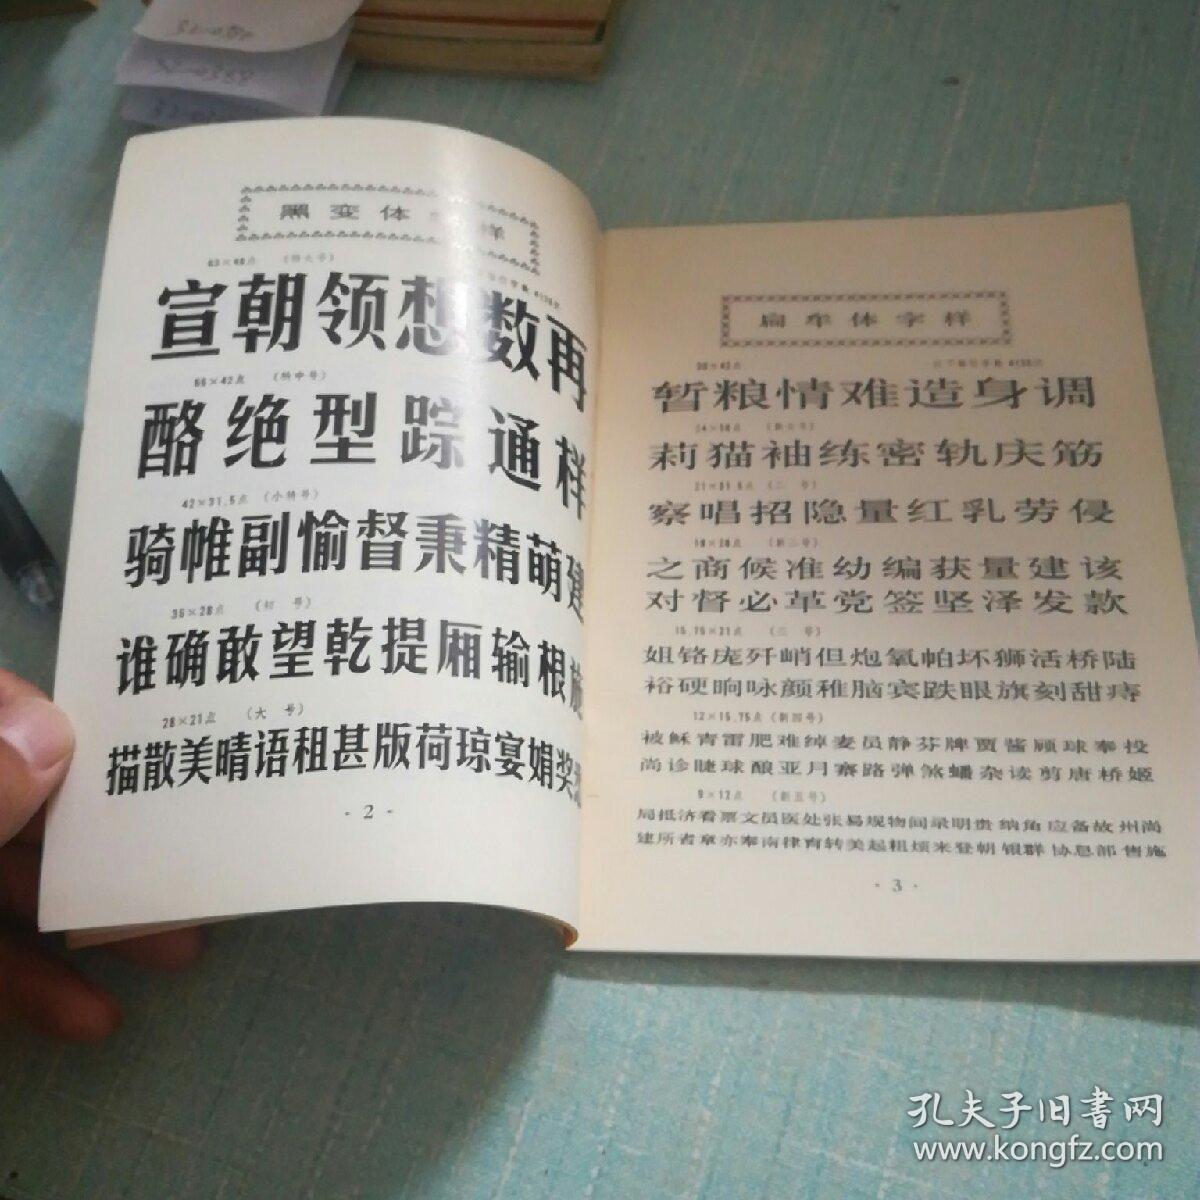 黑变体字样
63×48点 (特大号)
宣朝领想数再
56×42点 (特中号)
酪绝型踪通样
42×31.5点 (小特号)
骑帷副愉督秉精萌建
36×28点 (初号)
谁确敢望乾提厢输根施
28×21点 (大号)
描散美晴语租甚版荷琼宴娟奖
- 2 -
扁牟体字样
暂粮情难造身调
莉猫袖练密轨庆筋
21×31.5点 (二号)
察唱招隐量红乳劳侵
18×28点 (新二号)
之商候准幼编获量建该
对督必革党签坚泽发款
15.75×21点 (三号)
姐铬庞歼峭但炮氧帕坏狮活桥陆
裕硬晌咏颜稚脑宾跌眼旗刻甜痔
12×15.75点 (新四号)
被稣青雷肥难绰麦员静芬牌贾酱顾球奉投
尚诊睫球酿亚月寨路弹煞蟠杂读剪唐桥姬
9×12点 (新五号)
局抵济看票文员医处张易规物间录明贵纳角应备故州尚
建所者章亦奉南律育转美起租烦米登朝银群协息部售施
· 3 ·
孔夫子旧书网
www.kongfz.com